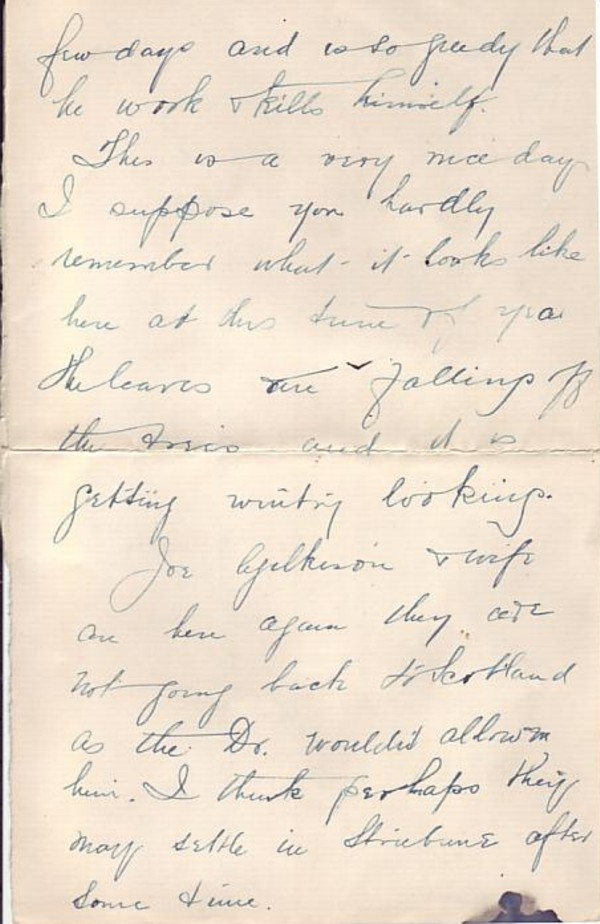 few days and is so greedy that
he work & kills himself.
This is a very nice day
I suppose you hardly
remember what it looks like
here at this time of year
the leaves are falling off
the trees and it is
getting wintry looking.
Joe Gilkison & wife
are here again they are
not going back to Scotland
as the Dr. wouldn't allow
him. I think perhaps they
may settle in Strabane after
some time.